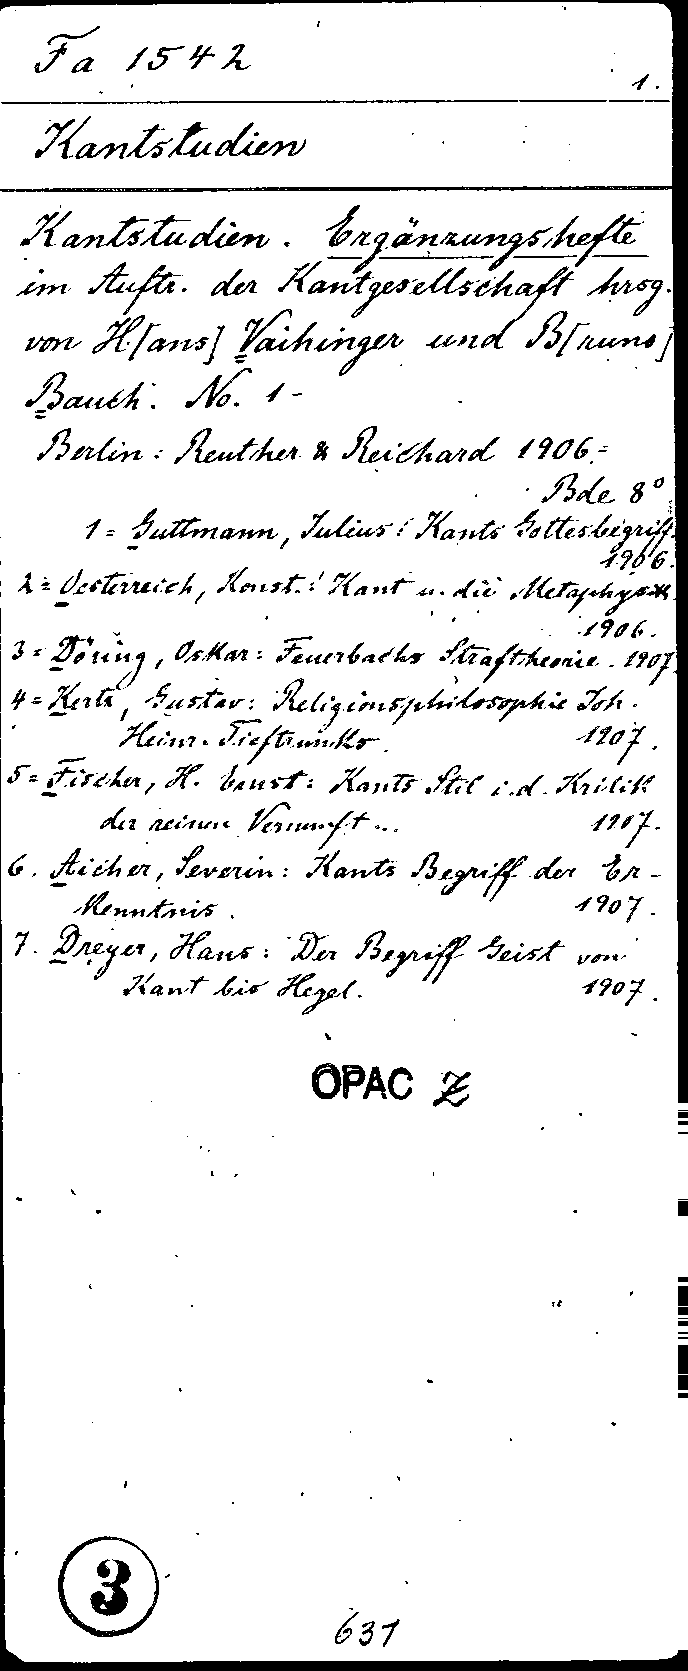 Fa 1542
1.
Kantstudien
Kantstudien. Ergänzungshefte
im Auftr. der Kantgesellschaft hrsg.
von H[ans] Vaihinger und B[runo]
Bauch. No. 1-
Berlin: Reuther & Reichard 1906.-
Bde 8°
1 = Guttmann, Julius: Kants Gottesbegriff.
1906.
2 = Oesterreich, Konst.: Kant u. die Metaphysik
1906.
3 = Döring, Oskar: Feuerbachs Straftheorie. 1907.
4 = Kertz, Gustav: Religionsphilosophie Joh.
Heinr. Tieftrunks. 1907.
5 = Fischer, H. Ernst: Kants Stil i.d. Kritik
der reinen Vernunft... 1907.
6. Aicher, Severin: Kants Begriff der Er-
kenntnis. 1907.
7. Dreyer, Hans: Der Begriff Geist von
Kant bis Hegel. 1907.
OPAC Z
3
637